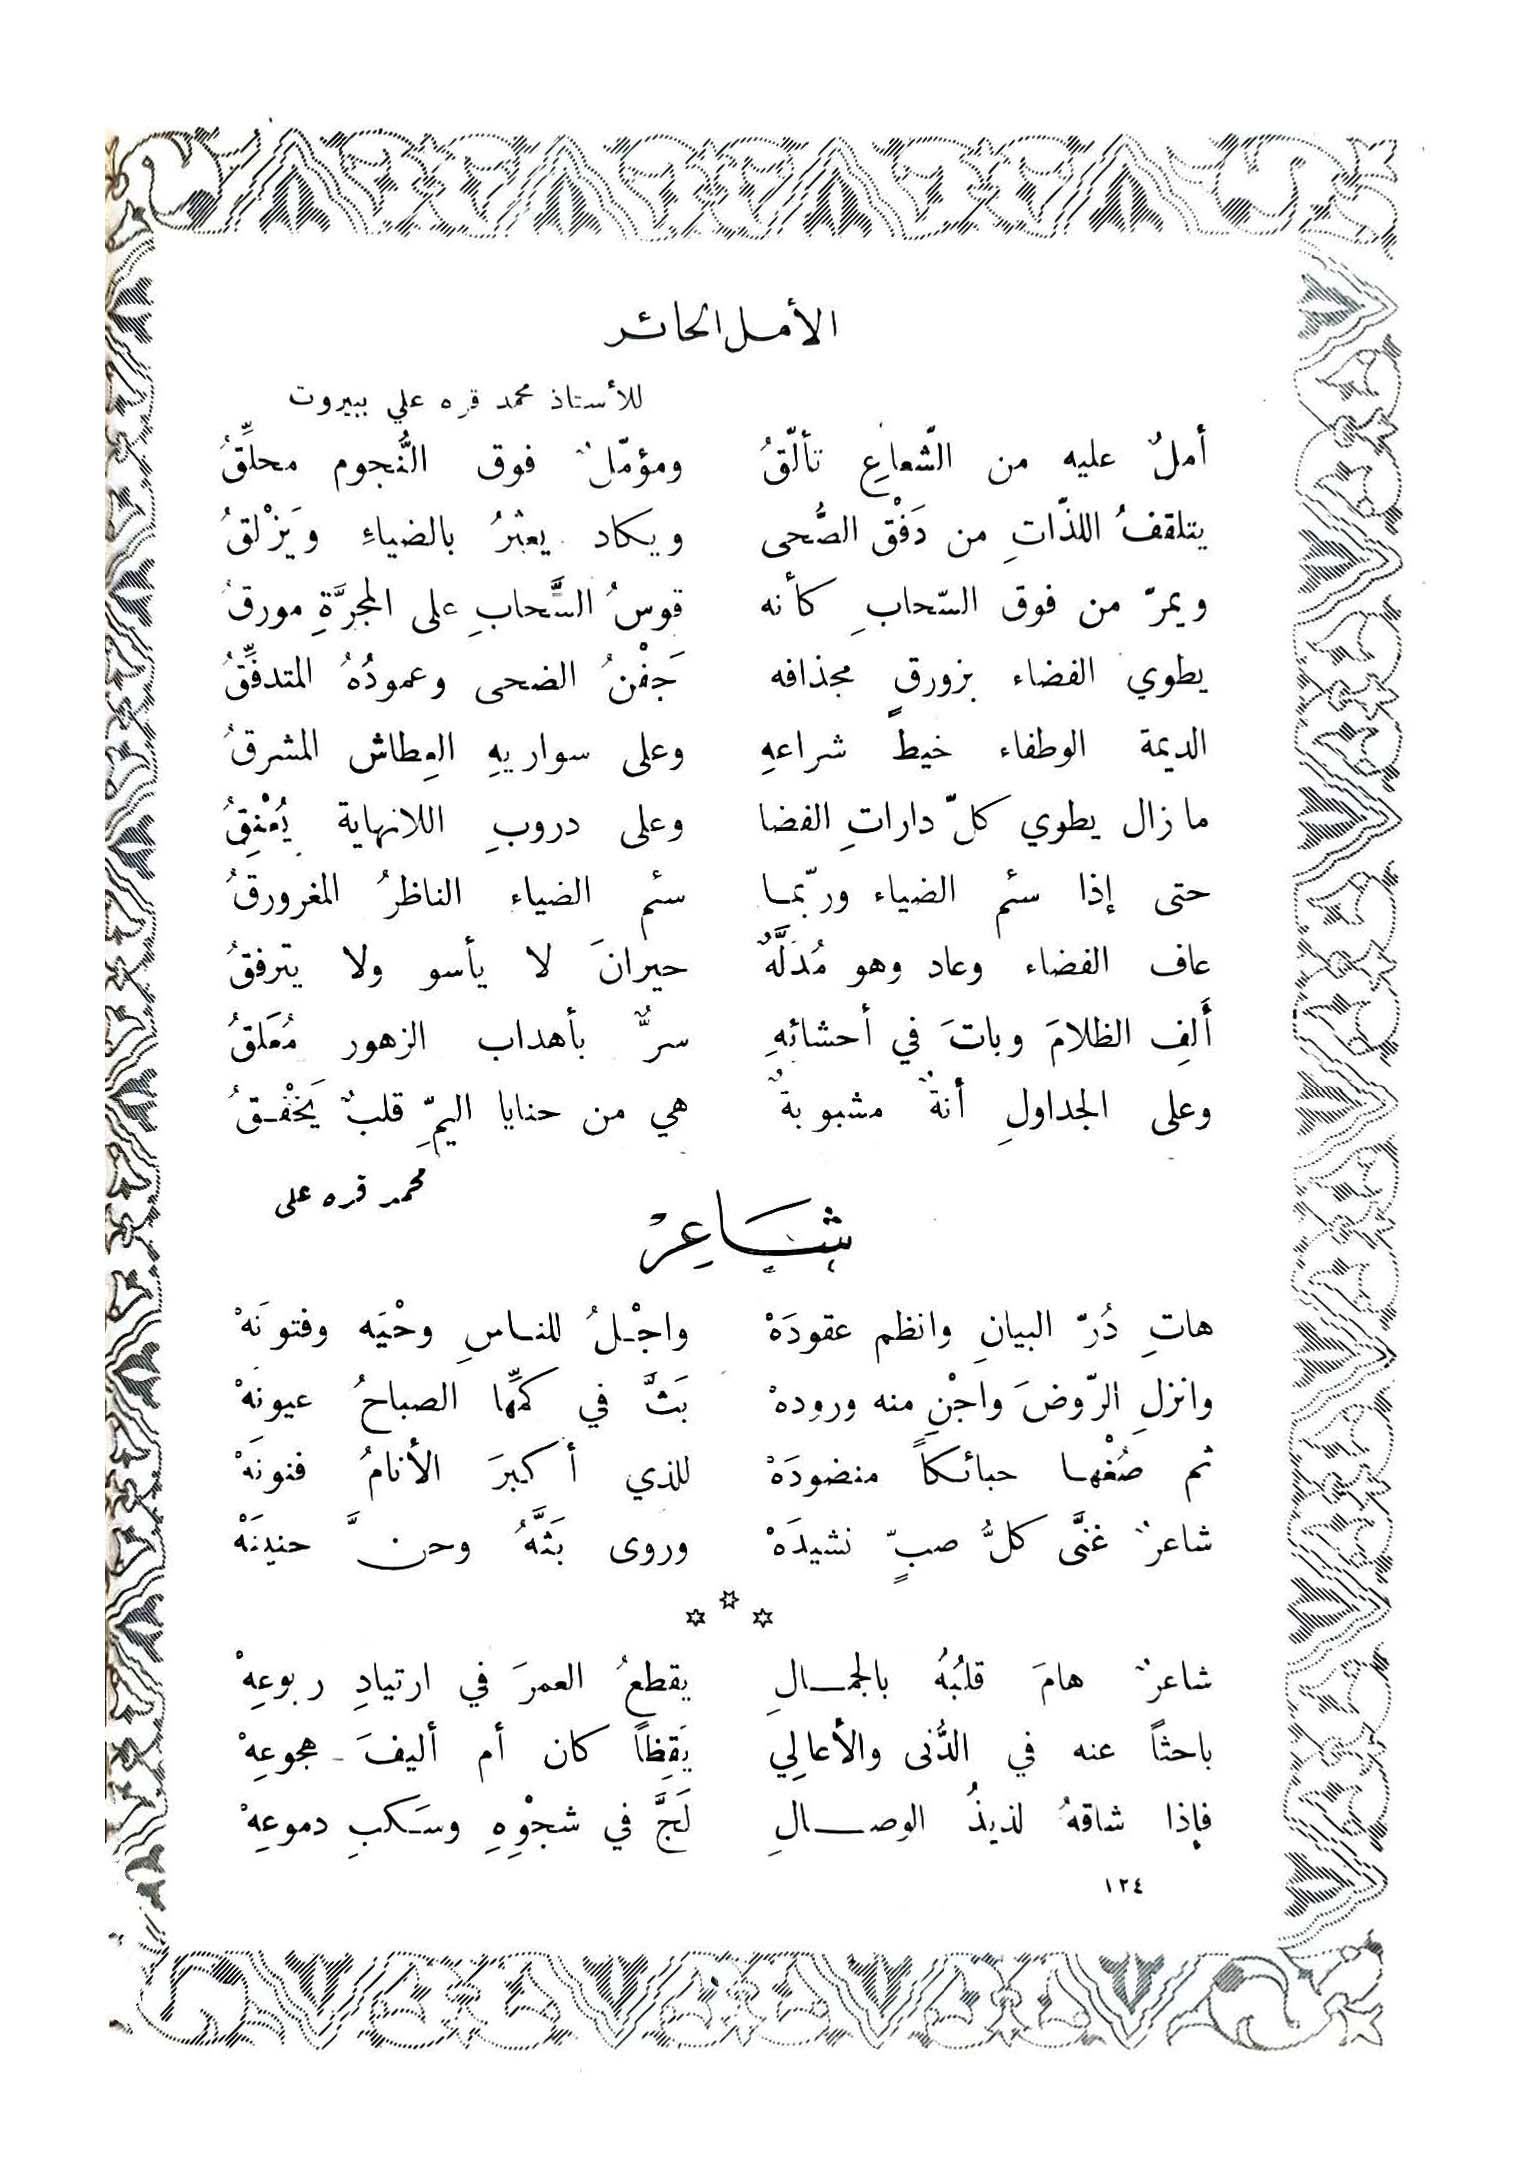 الأمل الحائر
للأستاذ محمد قره علي ببيروت
أملٌ عليه من الشّعاعِ تألّقُ ومؤمّلٌ فوق النُّجوم محلِّقُ
يتلقفُ اللذّاتِ من دَفْق الضُّحى ويكاد يعثرُ بالضياءِ ويَزْلقُ
ويمرّ من فوق السّحابِ كأنه قوسُ السَّحابِ على المجرَّةِ مورقُ
يطوي الفضاء بزورقٍ مجذافه جَفْنُ الضحى وعمودُهُ المتدفِّقُ
الديمة الوطفاء خيطُ شراعهِ وعلى سواريهِ العِطاش المشرقُ
ما زال يطوي كلّ داراتِ الفضا وعلى دروبِ اللانهاية يُعْنِقُ
حتى إذا سئم الضياء وربّما سئم الضياء الناظرُ المغرورقُ
عاف الفضاء وعاد وهو مُدَلَّهٌ حيرانَ لا يأسو ولا يترفقُ
أَلفِ الظلامَ وباتَ في أحشائهِ سرٌّ بأهداب الزهور مُعَلقُ
وعلى الجداولِ أنةٌ مشبوبةٌ هي من حنايا اليمِّ قلبٌ يَخْفقُ
محمد قره على
شاعِرْ
هاتِ دُرّ البيانِ وانظم عقودَهْ واجْلُ للناسِ وحْيَه وفتونَهْ
وانزلِ الرّوضَ واجْنِ منه ورودهْ بَثَّ في كمِّها الصباحُ عيونَهْ
ثم صُغْها حبائكاً منضودَهْ للذي أكبرَ الأنامُ فنونَهْ
شاعرٌ غنَّى كلُّ صبٍّ نشيدَهْ وروى بَثَّهُ وحنَّ حنينَهْ
***
شاعرٌ هامَ قلبُهُ بالجمالِ يقطعُ العمرَ في ارتيادِ ربوعِهْ
باحثاً عنه في الدُّنى والأعالِي يَقِظاً كان أم أليفَ هجوعِهْ
فإذا شاقهُ لذيذُ الوصالِ لَجَّ في شجْوِهِ وسَكبِ دموعِهْ
١٢٤